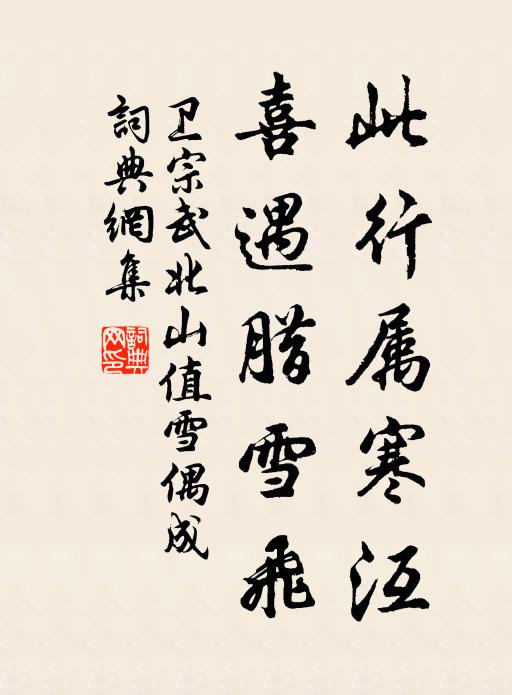 此行属寒沍
喜遇腊雪飛
卫宗武北山值雪偶成
詞典網集
詞典网印